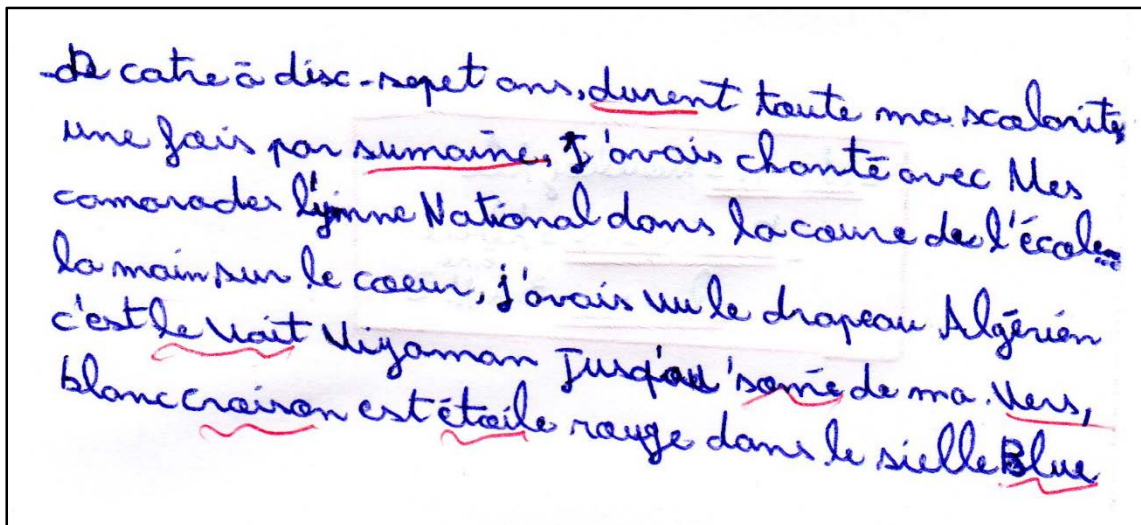 De catre à disc-sepet ans, durent toute ma scalarité
une fais par sumaine, J'avais chanté avec Mes
camarades l'ymne National dans la coure de l'école
la main sur le coeur, j'avais vu le drapeau Algérién
c'est le vait Viyaman Jusqu'au 'somé de ma Vers,
blanc craison est étoile rouge dans le sielle Blue